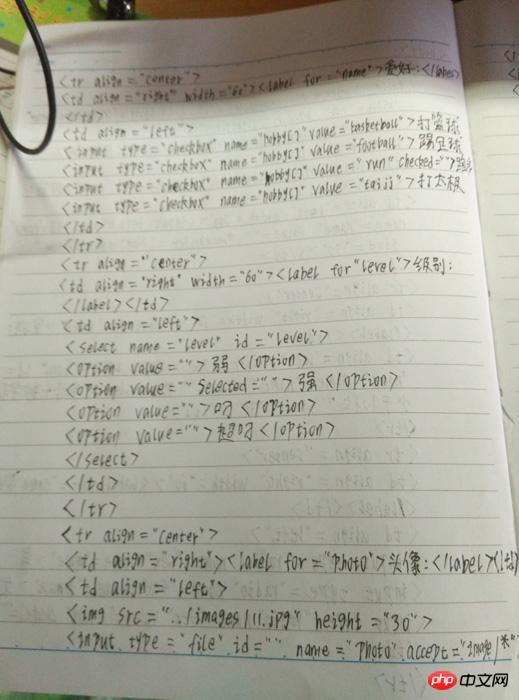 <tr align="center">
<td align="right" width="60"><label for="name">爱好:</label>
</td>
<td align="left">
<input type="checkbox" name="hobby[]" value="basketball">打篮球
<input type="checkbox" name="hobby[]" value="football">踢足球
<input type="checkbox" name="hobby[]" value="run" checked="">跑步
<input type="checkbox" name="hobby[]" value="taiji">打太极
</td>
</tr>
<tr align="center">
<td align="right" width="60"><label for"level">级别:
</label></td>
<td align="left">
<select name="level" id="level">
<option value="">弱</option>
<option value="" selected="">强</option>
<option value="">叼</option>
<option value="">超叼</option>
</select>
</td>
</tr>
<tr align="center">
<td align="right"><label for="photo">头像:</label></td>
<td align="left">
<img src="../images/11.jpg" height="30">
<input type="file" id="" name="photo" accept="image/*"
php中文网